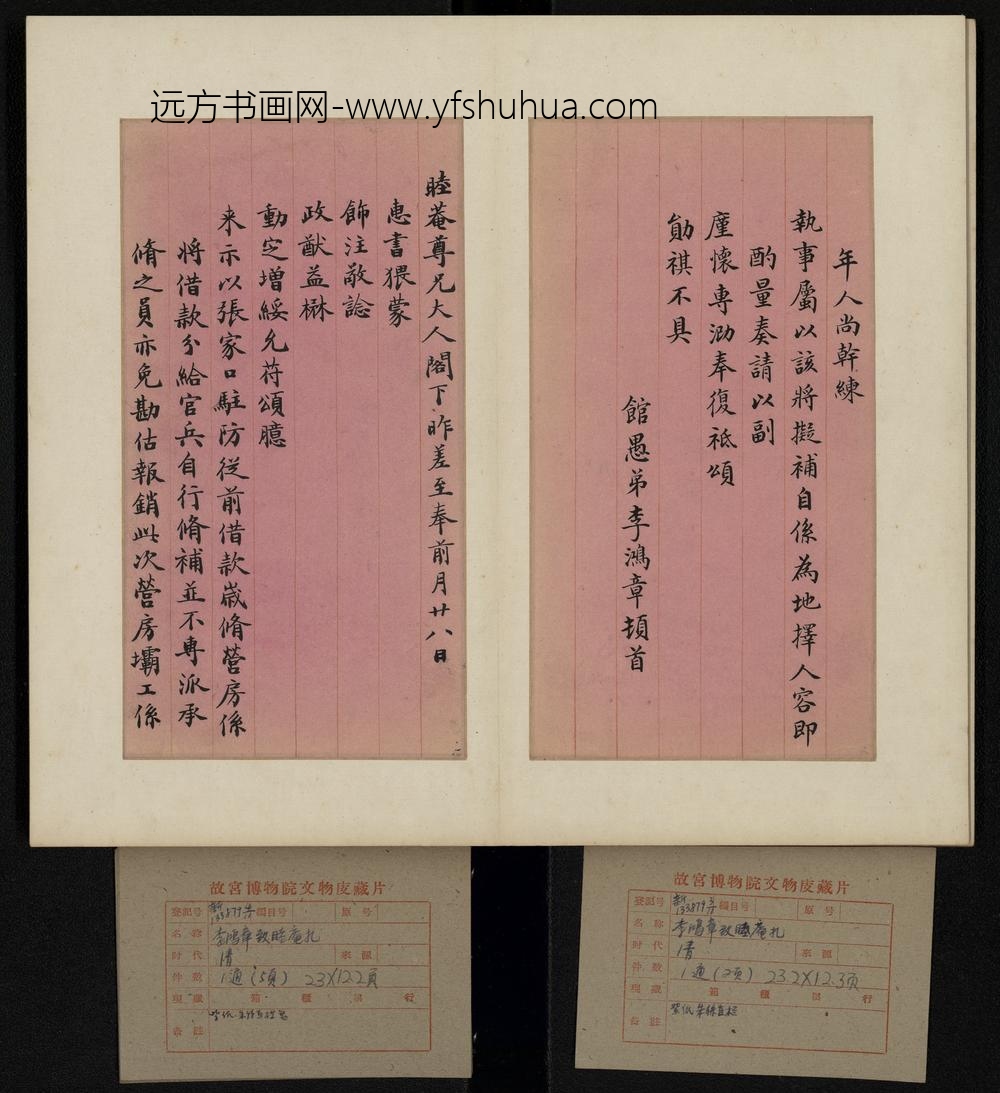 远方书画网-www.yfshuhua.com
年人尚幹練
執事屬以該將擬補自係為地擇人容即
酌量奏請以副
廑懷專泐奉復祗頌
勛祺不具
館愚弟李鴻章頓首
睦菴尊兄大人閣下昨差至奉前月廿八日
惠書猥蒙
飾注敬諗
政猷益楙
動定增綏允符頌臆
来示以張家口駐防從前借款歲脩營房係
將借款分給官兵自行脩補並不專派承
脩之員亦免勘估報銷此次營房壩工係
故宮博物院文物庋藏片
登記号 133879 編目号 原号
名称 李鴻章致睦菴札
时代 清 來源
件数 1通(5頁) 23X12.2頁
現藏 箱 櫃 層 行
备註
故宮博物院文物庋藏片
登記号 133879 編目号 原号
名称 李鴻章致睦菴札
时代 清 來源
件数 1通(2頁) 23.2X12.3頁
現藏 箱 櫃 層 行
备註